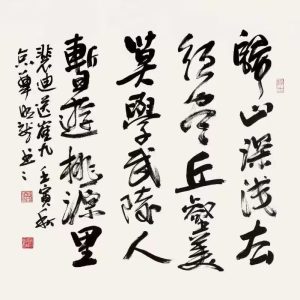 歸山深淺去
須盡丘壑美
莫學武陵人
暫遊桃源里
裴迪送崔九 壬寅秋